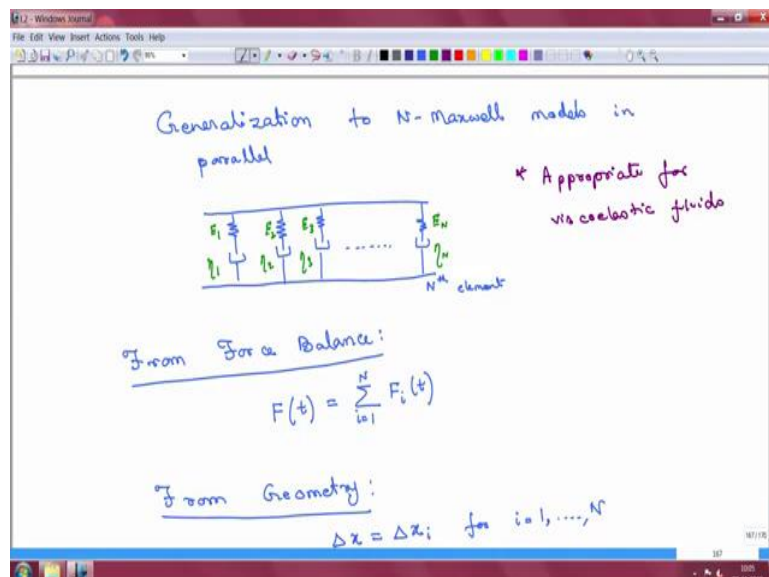 L2 - Windows Journal
File Edit View Insert Actions Tools Help
Generalization to N-Maxwell models in
parallel
* Appropriate for
viscoelastic fluids
E1 E2 E3 ....... EN
η1 η2 η3 ηN
Nth element
From Force Balance:
F(t) = Σ_{i=1}^{N} Fi(t)
From Geometry:
Δx = Δxi for i=1, ...., N
167/170
167
10:05